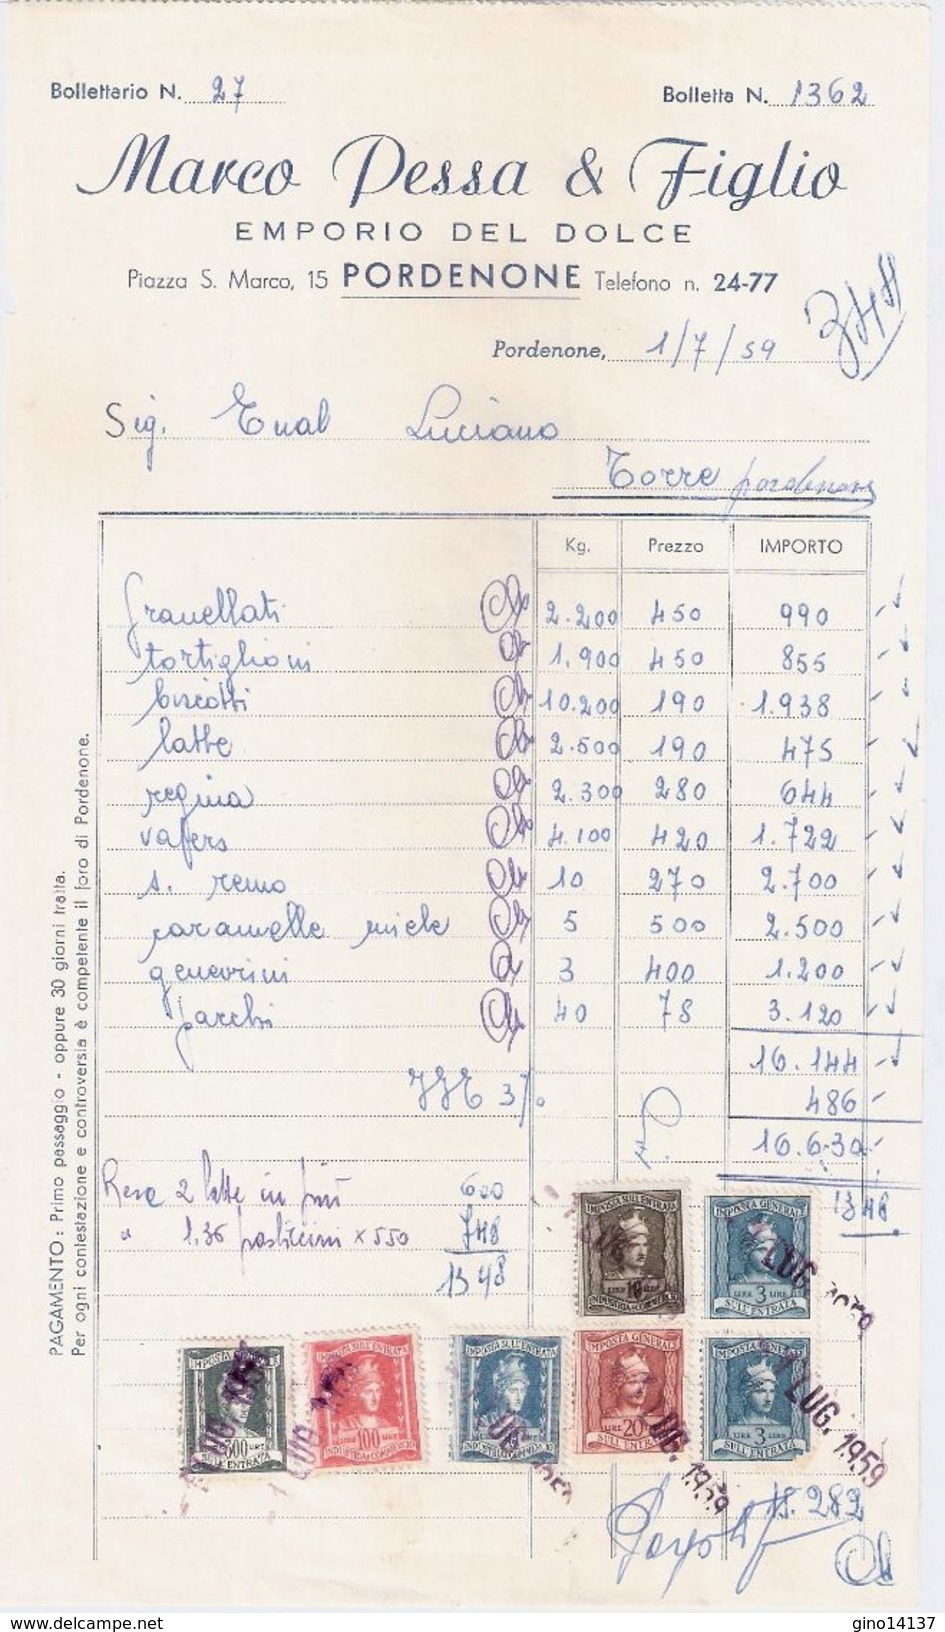 Bollettario N. 27 Bolletta N. 1362
Marco Pessa & Figlio
EMPORIO DEL DOLCE
Piazza S. Marco, 15 PORDENONE Telefono n. 24-77
Pordenone, 1/7/59
Sig. Luciano
Torre pordenone
Kg. Prezzo IMPORTO
granellati 2.200 450 990
tortiglioni 1.900 450 855
biscotti 10.200 190 1.938
latte 2.500 190 475
regina 2.300 280 644
vafers 4.100 420 1.722
s. remo 10 270 2.700
caramelle miele 5 500 2.500
genovrini 3 400 1.200
pacchi 40 78 3.120
16.144
IGE 3% 486
16.630
Rese 2 latte in più 600 1348
" 1.36 pasticcini x 550 748
1348
PAGAMENTO: Primo passaggio - oppure 30 giorni tratta.
Per ogni contestazione e controversia è competente il foro di Pordenone.
IMPOSTA SULL'ENTRATA
LIRE 10 LIRE
INDUSTRIA E COMMERCIO
IMPOSTA GENERALE
LIRE 3 LIRE
SULL'ENTRATA
LUG. 1959
IMPOSTA GENERALE
300 LIRE
SULL'ENTRATA
LUG. 1959
IMPOSTA SULL'ENTRATA
LIRE 100 LIRE
INDUSTRIA E COMMERCIO
1 LUG. 1959
IMPOSTA SULL'ENTRATA
INDUSTRIA E COMMERCIO
LUG. 1959
IMPOSTA GENERALE
LIRE 20
SULL'ENTRATA
LUG. 1959
IMPOSTA GENERALE
LIRE 3 LIRE
SULL'ENTRATA
1 LUG. 1959
15.282
gino14137